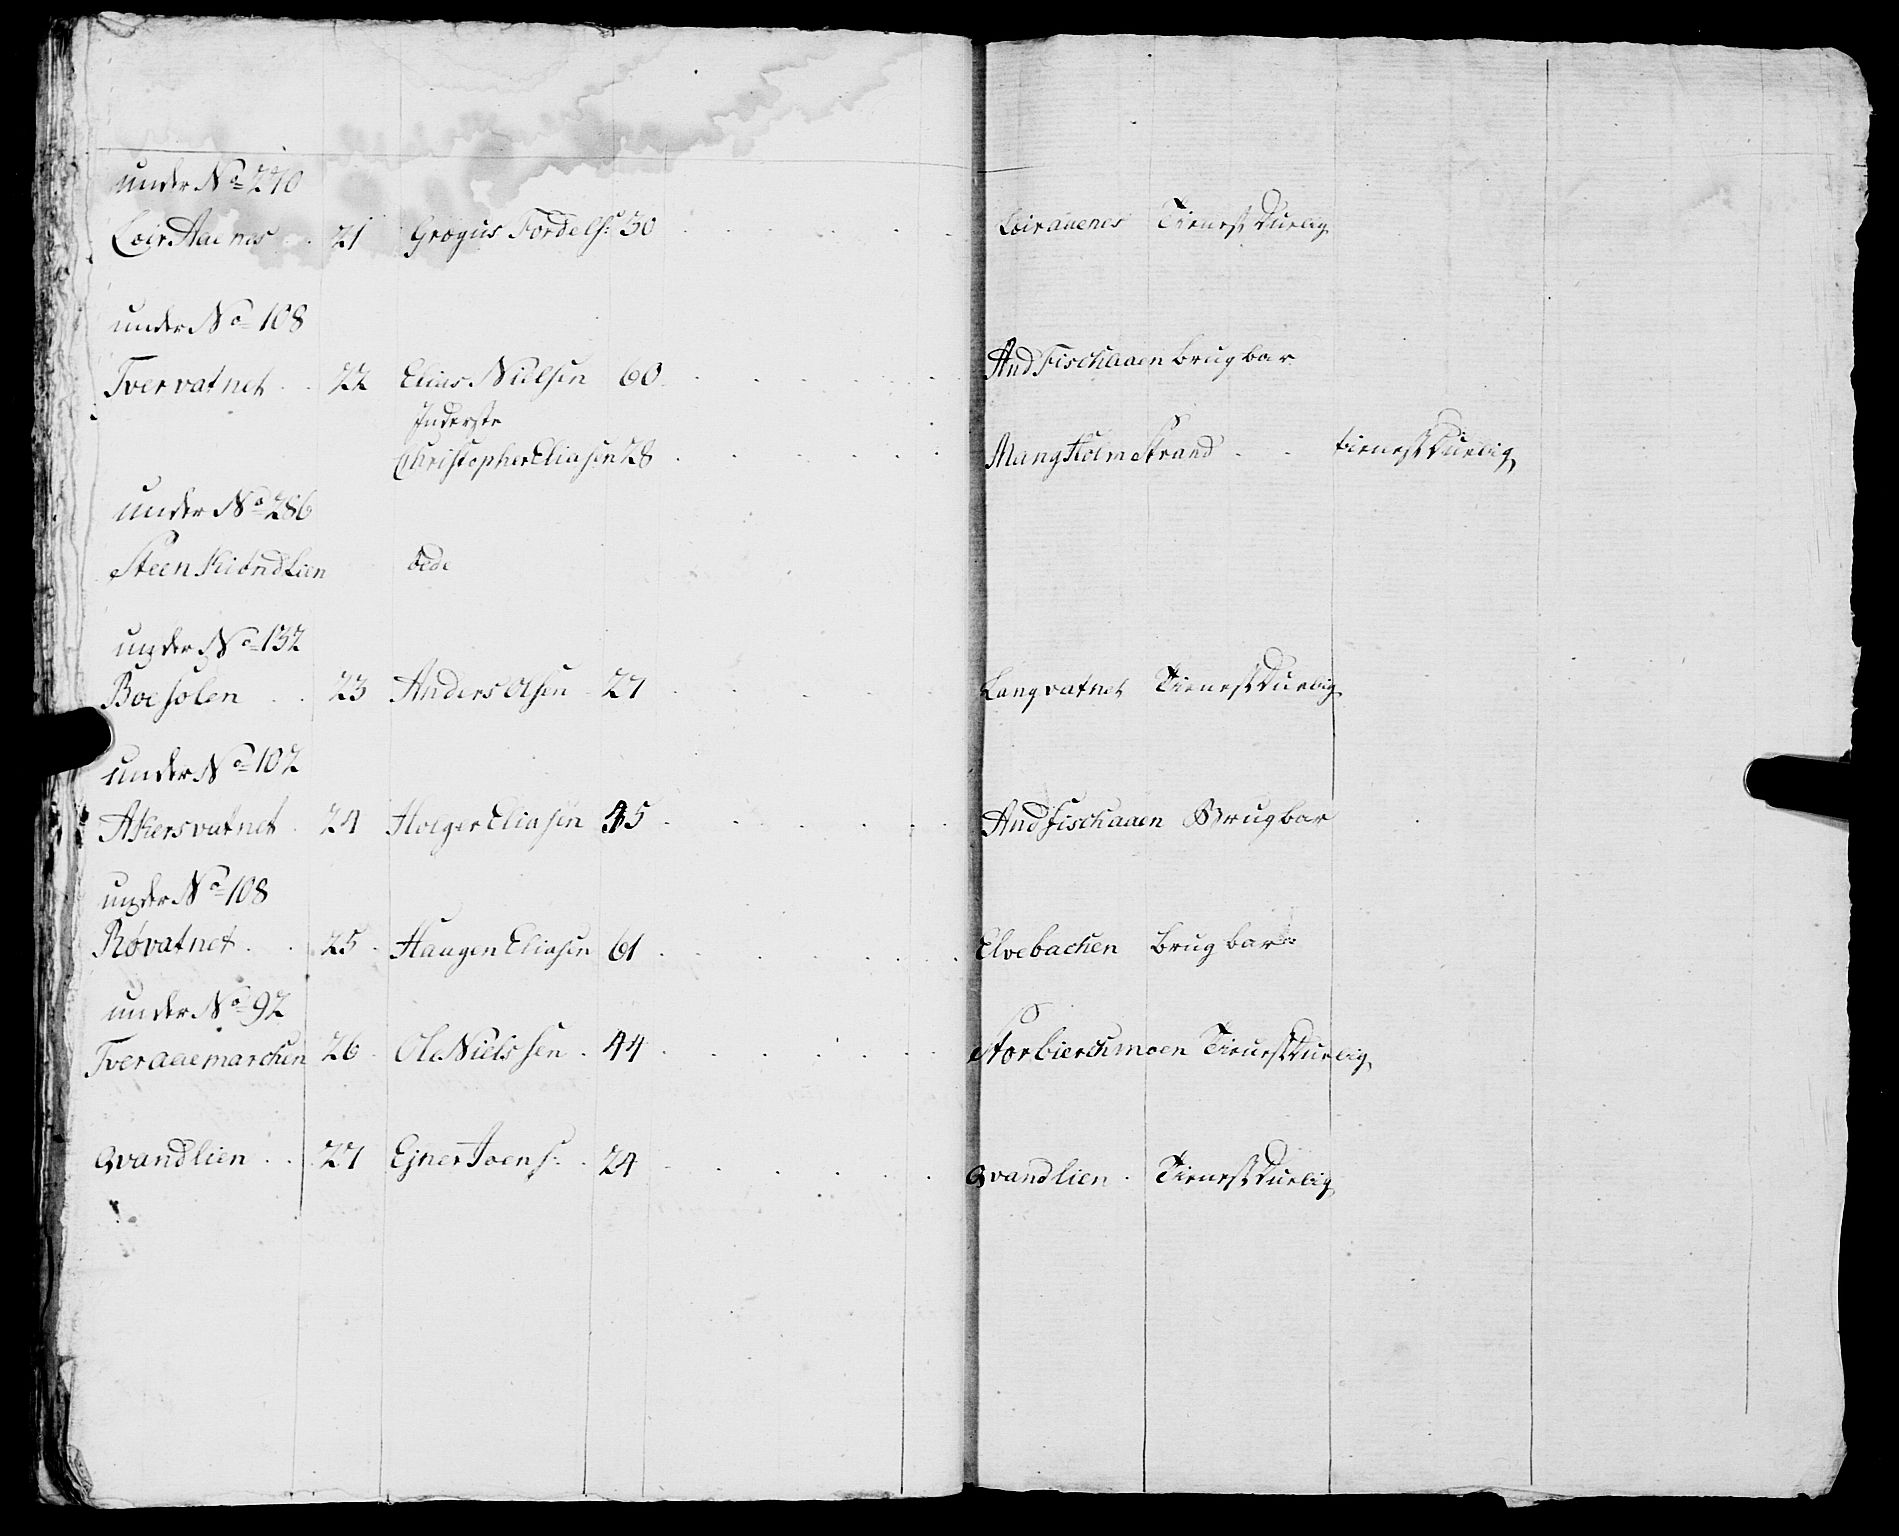 under No 270
LoirAaenes . 21 Grøgus Fordels: 30 . . . . . Loiraaenes Tienest Duelig
under No 108
Tvervatnet . . 22 Elias Nielsen 60 . . . . . And Fischaaen brugbar
Inderste
Christopher Eliasen 28 . . . . . Mang Holmstrand . . tienest Duelig
under No 286
Steen Kiøndlien øde
under No 132
Boesolen . . 23 Anders Olsen 27 . . . . . Langvatnet Tienest Duelig
under No 102
Akersvatnet . 24 Holger Eliasen 45 . . . . . And fischaaen Brugbar
under No 108
Røvatnet . . 25 . Haagen Eliasen 61 . . . . . Elvebachen brugbar
under No 92
Tveraaemarchen 26 . Ole Nielssen . 44 . . . . . Storbierchmoen Tienest Duelig
Qvandlien . . 27 Ejner Joens: . 24 . . . . . Qvandlien . Tienest Duelig